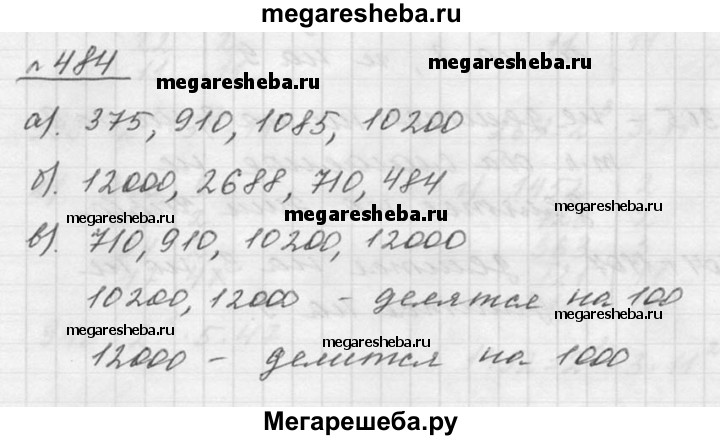 megaresheba.ru
№ 484
megaresheba.ru
megaresheba.ru
а). 375, 910, 1085, 10200
б). 12000, 2688, 710, 484
megaresheba.ru
megaresheba.ru
megaresheba.ru
в). 710, 910, 10200, 12000
10200, 12000 - делятся на 100
megaresheba.ru
megaresheba.ru
12000 - делится на 1000
Мегарешеба.ру